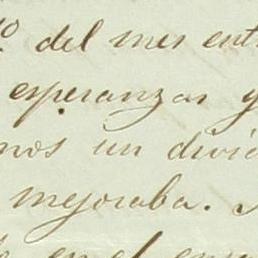 º del mes ent
esperanzas y
mos un divid
mejoraba.
en el